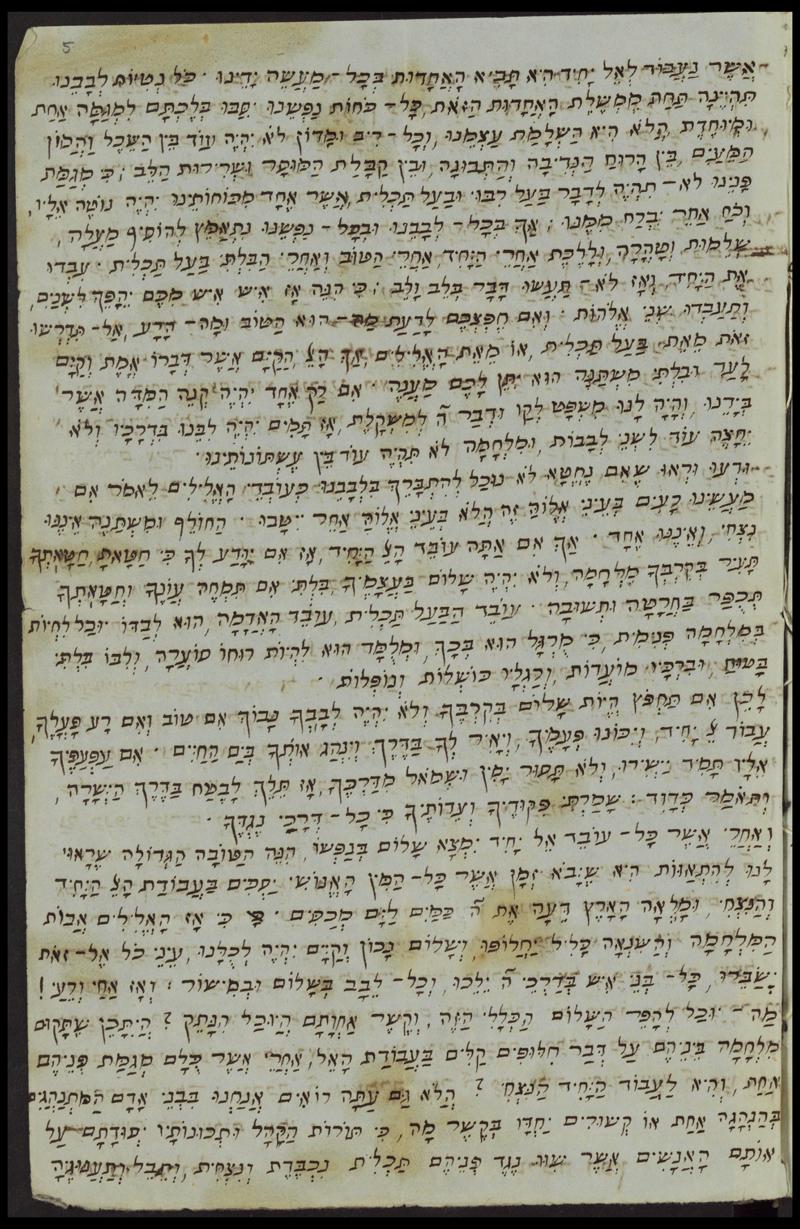 5
אֲשֶׁר נַעֲבוֹד לְאֵל יָחִיד הִיא תָּבִיא הָאַחֲדוּת בְּכָל־מַעֲשֵׂה יָדֵינוּ . כֹּל נְטִיּוֹת לְבָבֵנוּ
תִּהְיֶינָה תַּחַת מֶמְשֶׁלֶת הָאַחֲדוּת הַזֹּאת, כָּל־כֹּחוֹת נַפְשֵׁנוּ יִסֹּבּוּ בְּלֶכְתָּם לִמְגַמָּה אַחַת
וּמְיוּחֶדֶת הֲלֹא הִיא הַשְׁלָמַת עַצְמֵנוּ, וְכָל־רִיב וּמָדוֹן לֹא יִהְיֶה עוֹד בֵּין הַשֵּׂכֶל וַהֲמוֹן
הַמֵּעַיִם, בֵּין הָרוּחַ הַנְּדִיבָה וְהַתְּבוּנָה, וּבֵין קַבָּלַת הַמּוּסָר וּשְׁרִירוּת הַלֵּב ; כִּי מְגַמַּת
פָּנֵינוּ לֹא־תִהְיֶה לְדָבָר בַּעַל רִבּוּי וּבַעַל תַּכְלִית, אֲשֶׁר אֶחָד מִכּוֹחוֹתֵינוּ יִהְיֶה נוֹטֶה אֵלָיו,
וְכֹחַ אַחֵר יִבְרַח מִמֶּנּוּ ; אַךְ בְּכָל־לְבָבֵנוּ וּבְכָל־נַפְשֵׁנוּ נִתְאַמֵּץ לְהוֹסִיף מַעֲלָה,
שְׁלֵמוּת וְטָהֳרָה, וְלָלֶכֶת אַחֲרֵי הַיָּחִיד, אַחֲרֵי הַטּוֹב וְאַחֲרֵי הַבִּלְתִּי בַּעַל תַּכְלִית . עִבְדוּ
אֶת הַיָּחִיד, וְאָז לֹא־תַעֲשׂוּ דָּבָר בְּלֵב וָלֵב ; כִּי הִנֵּה אָז אִישׁ אִישׁ מִכֶּם יֵהָפֵךְ לִשְׁנַיִם,
וְתַעַבְדוּ שְׁנֵי אֱלֹהוֹת : וְאִם חֶפְצְכֶם לָדַעַת מַה־הוּא הַטּוֹב וּמָה־הָרָע, אַל־תִּדְרְשׁוּ
זֹאת מֵאֵת בַּעַל תַּכְלִית, אוֹ מֵאֵת הָאֱלִילִים, אַךְ הָאֵל הַקַּיָּם אֲשֶׁר דְּבָרוֹ אֱמֶת וְקַיָּם
לָעַד וּבִלְתִּי מִשְׁתַּנֶּה הוּא יִתֵּן לָכֶם מַעֲנֶה . אִם רַק אֶחָד יִהְיֶה קְנֵה הַמִּדָּה אֲשֶׁר
בְּיָדֵנוּ, וְהָיָה לָנוּ מִשְׁפָּט לְקָו וּדְבַר ה׳ לְמִשְׁקֹלֶת, אָז תָּמִים יִהְיֶה לִבֵּנוּ בִּדְרָכָיו וְלֹא
יֵחָצֶה עוֹד לִשְׁנֵי לְבָבוֹת, וּמִלְחָמָה לֹא תִהְיֶה עוֹד בֵּין עֶשְׁתּוֹנוֹתֵינוּ .
וּדְעוּ וּרְאוּ שֶׁאִם נֶחֱטָא לֹא נוּכַל לְהִתְבָּרֵךְ בִּלְבָבֵנוּ כְּעוֹבְדֵי הָאֱלִילִים לֵאמֹר אִם
מַעֲשֵׂינוּ רָעִים בְּעֵינֵי אֱלוֹהַּ זֶה הֲלֹא בְּעֵינֵי אֱלוֹהַּ אַחֵר יִיטָבוּ . הַחוֹלֵף וּמִשְׁתַּנֶּה אֵינֶנּוּ
נִצְחִי, וְאֵינֶנּוּ אֶחָד . אַךְ אִם אַתָּה עוֹבֵד הָאֵל הַיָּחִיד, אָז אִם יִוָּדַע לְךָ כִּי חָטָאתָ, חַטָּאתְךָ
תָּעִיר בְּקִרְבְּךָ מִלְחָמָה, וְלֹא יִהְיֶה שָׁלוֹם בַּעֲצָמֶיךָ, בִּלְתִּי אִם תִּמָּחֶה עֲוֹנְךָ וְחַטָּאתְךָ
תְּכֻפַּר בַּחֲרָטָה וּתְשׁוּבָה . עוֹבֵד הַבַּעַל תַּכְלִית, עוֹבֵד הָאֲדָמָה, הוּא לְבַדּוֹ יוּכַל לִחְיוֹת
בְּמִלְחָמָה פְּנִימִית, כִּי מֻרְגָּל הוּא בְּכָךְ, וּמְלֻמָּד הוּא לִהְיוֹת רוּחוֹ סוֹעֲרָה, וְלִבּוֹ בִּלְתִּי
בָּטוּחַ, וּבִרְכָּיו מוֹעֲדוֹת, וְרַגְלָיו כּוֹשְׁלוֹת וְנוֹפְלוֹת .
לָכֵן אִם תַּחְפֹּץ הֱיוֹת שָׁלוֹם בְּקִרְבֶּךָ וְלֹא יִהְיֶה לְבָבְךָ נָבוֹךְ אִם טוֹב וְאִם רָע פָּעֳלֶךָ,
עֲבוֹד אֵל יָחִיד, וְיִכּוֹנוּ פְּעָמֶיךָ, וְיָאִיר לְךָ בַּדֶּרֶךְ וְיִנְהַג אוֹתְךָ בְּיַם הַחַיִּים . אִם עַפְעַפֶּיךָ
אֵלָיו תָּמִיד יַיְשִׁירוּ, וְלֹא תָסוּר יָמִין וּשְׂמֹאל מִדַּרְכֶּךָ, אָז תֵּלֵךְ לָבֶטַח בַּדֶּרֶךְ הַיְשָׁרָה,
וְתֹאמַר כְּדָוִד : שָׁמַרְתִּי פִקּוּדֶיךָ וְעֵדוֹתֶיךָ כִּי כָל־דְּרָכַי נֶגְדֶּךָ .
וְאַחֲרֵי אֲשֶׁר כָּל־עוֹבֵד אֵל יָחִיד יִמְצָא שָׁלוֹם בְּנַפְשׁוֹ, הִנֵּה הַטּוֹבָה הַגְּדוֹלָה שֶׁרָאוּי
לָנוּ לְהִתְאַוּוֹת הִיא שֶׁיָּבֹא זְמָן אֲשֶׁר כָּל־הַמִּין הָאֱנוֹשִׁי יַסְכִּים בַּעֲבוֹדַת הָאֵל הַיָּחִיד
וְהַנִּצְחִי, וּמָלְאָה הָאָרֶץ דֵּעָה אֶת ה׳ כַּמַּיִם לַיָּם מְכַסִּים . כִּי אָז הָאֱלִילִים אֲבוֹת
הַמִּלְחָמָה וְהַשִּׂנְאָה כָּלִיל יַחֲלוֹפוּ, וְשָׁלוֹם נָכוֹן וְקַיָּם יִהְיֶה לְכֻלָּנוּ, עֵינֵי כֹל אֶל־זֹאת
יְשַׂבֵּרוּ, כָּל־בְּנֵי אִישׁ בְּדַרְכֵי ה׳ יֵלֵכוּ, וְכָל־לֵבָב בְּשָׁלוֹם וּבְמִישׁוֹר : וְאָז אַחַי וְרֵעַי !
מַה־יּוּכַל לְהָפֵר הַשָּׁלוֹם הַכְּלָלִי הַזֶּה, וְקֶשֶׁר אַחֲוָתָם הֲיוּכַל הִנָּתֵק ? הֲיִתָּכֵן שֶׁתָּקוּם
מִלְחָמָה בֵּינֵיהֶם עַל דְּבַר חִלּוּפִים קַלִּים בַּעֲבוֹדַת הָאֵל, אַחֲרֵי אֲשֶׁר כֻּלָּם מְגַמַּת פְּנֵיהֶם
אַחַת, וְהִיא לַעֲבוֹד הַיָּחִיד הַנִּצְחִי ? הֲלֹא גַם עַתָּה רוֹאִים אֲנַחְנוּ בִּבְנֵי אָדָם הַמִּתְנַהֲגִים
בְּהַנְהָגָה אַחַת אוֹ קְשׁוּרִים יַחְדָּו בְּקֶשֶׁר מָה, כִּי תּוֹרוֹת הַקָּהָל וּתְכוּנוֹתָיו יְסוּדָתָם עַל
אוֹתָם הָאֲנָשִׁים אֲשֶׁר שִׂוּוּ נֶגֶד פְּנֵיהֶם תַּכְלִית נִכְבֶּדֶת וְנִצְחִית,